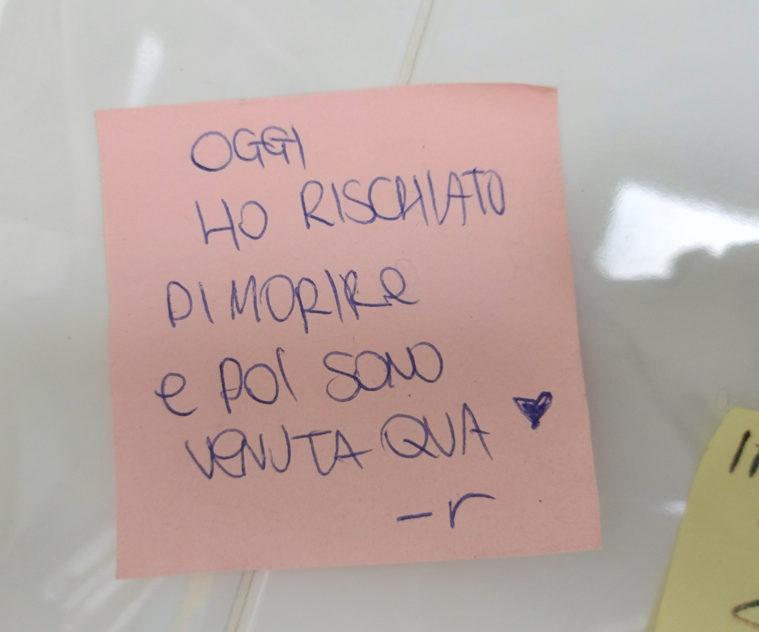 OGGI
HO RISCHIATO
DI MORIRE
e POI SONO
VENUTA QUA ♥
-r